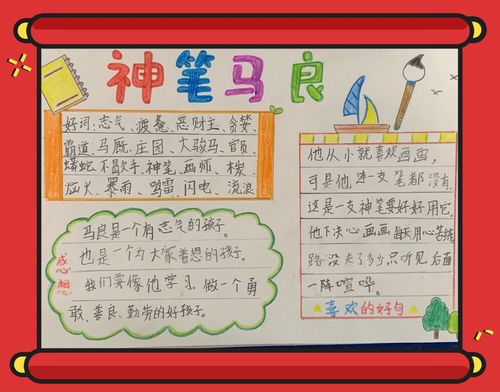 神笔马良
好词:志气、疲惫、恶财主、贪婪、
霸道、马厩、庄园、大骏马、官员、
蟒蛇、不歇手、神笔、画师、木炭
炕火、暴雨、鸣雷、闪电、流浪
马良是一个有志气的孩子。
也是一个为大家着想的孩子。
我们要像他学习、做一个勇
敢、善良、勤劳的好孩子。
感想
他从小就喜欢画画,
可是他连一支笔都没有。
这是一支神笔要好好用它。
他下决心画画每天用心苦练
路没走了多少只听见后面
一阵喧哗。
喜欢的好句